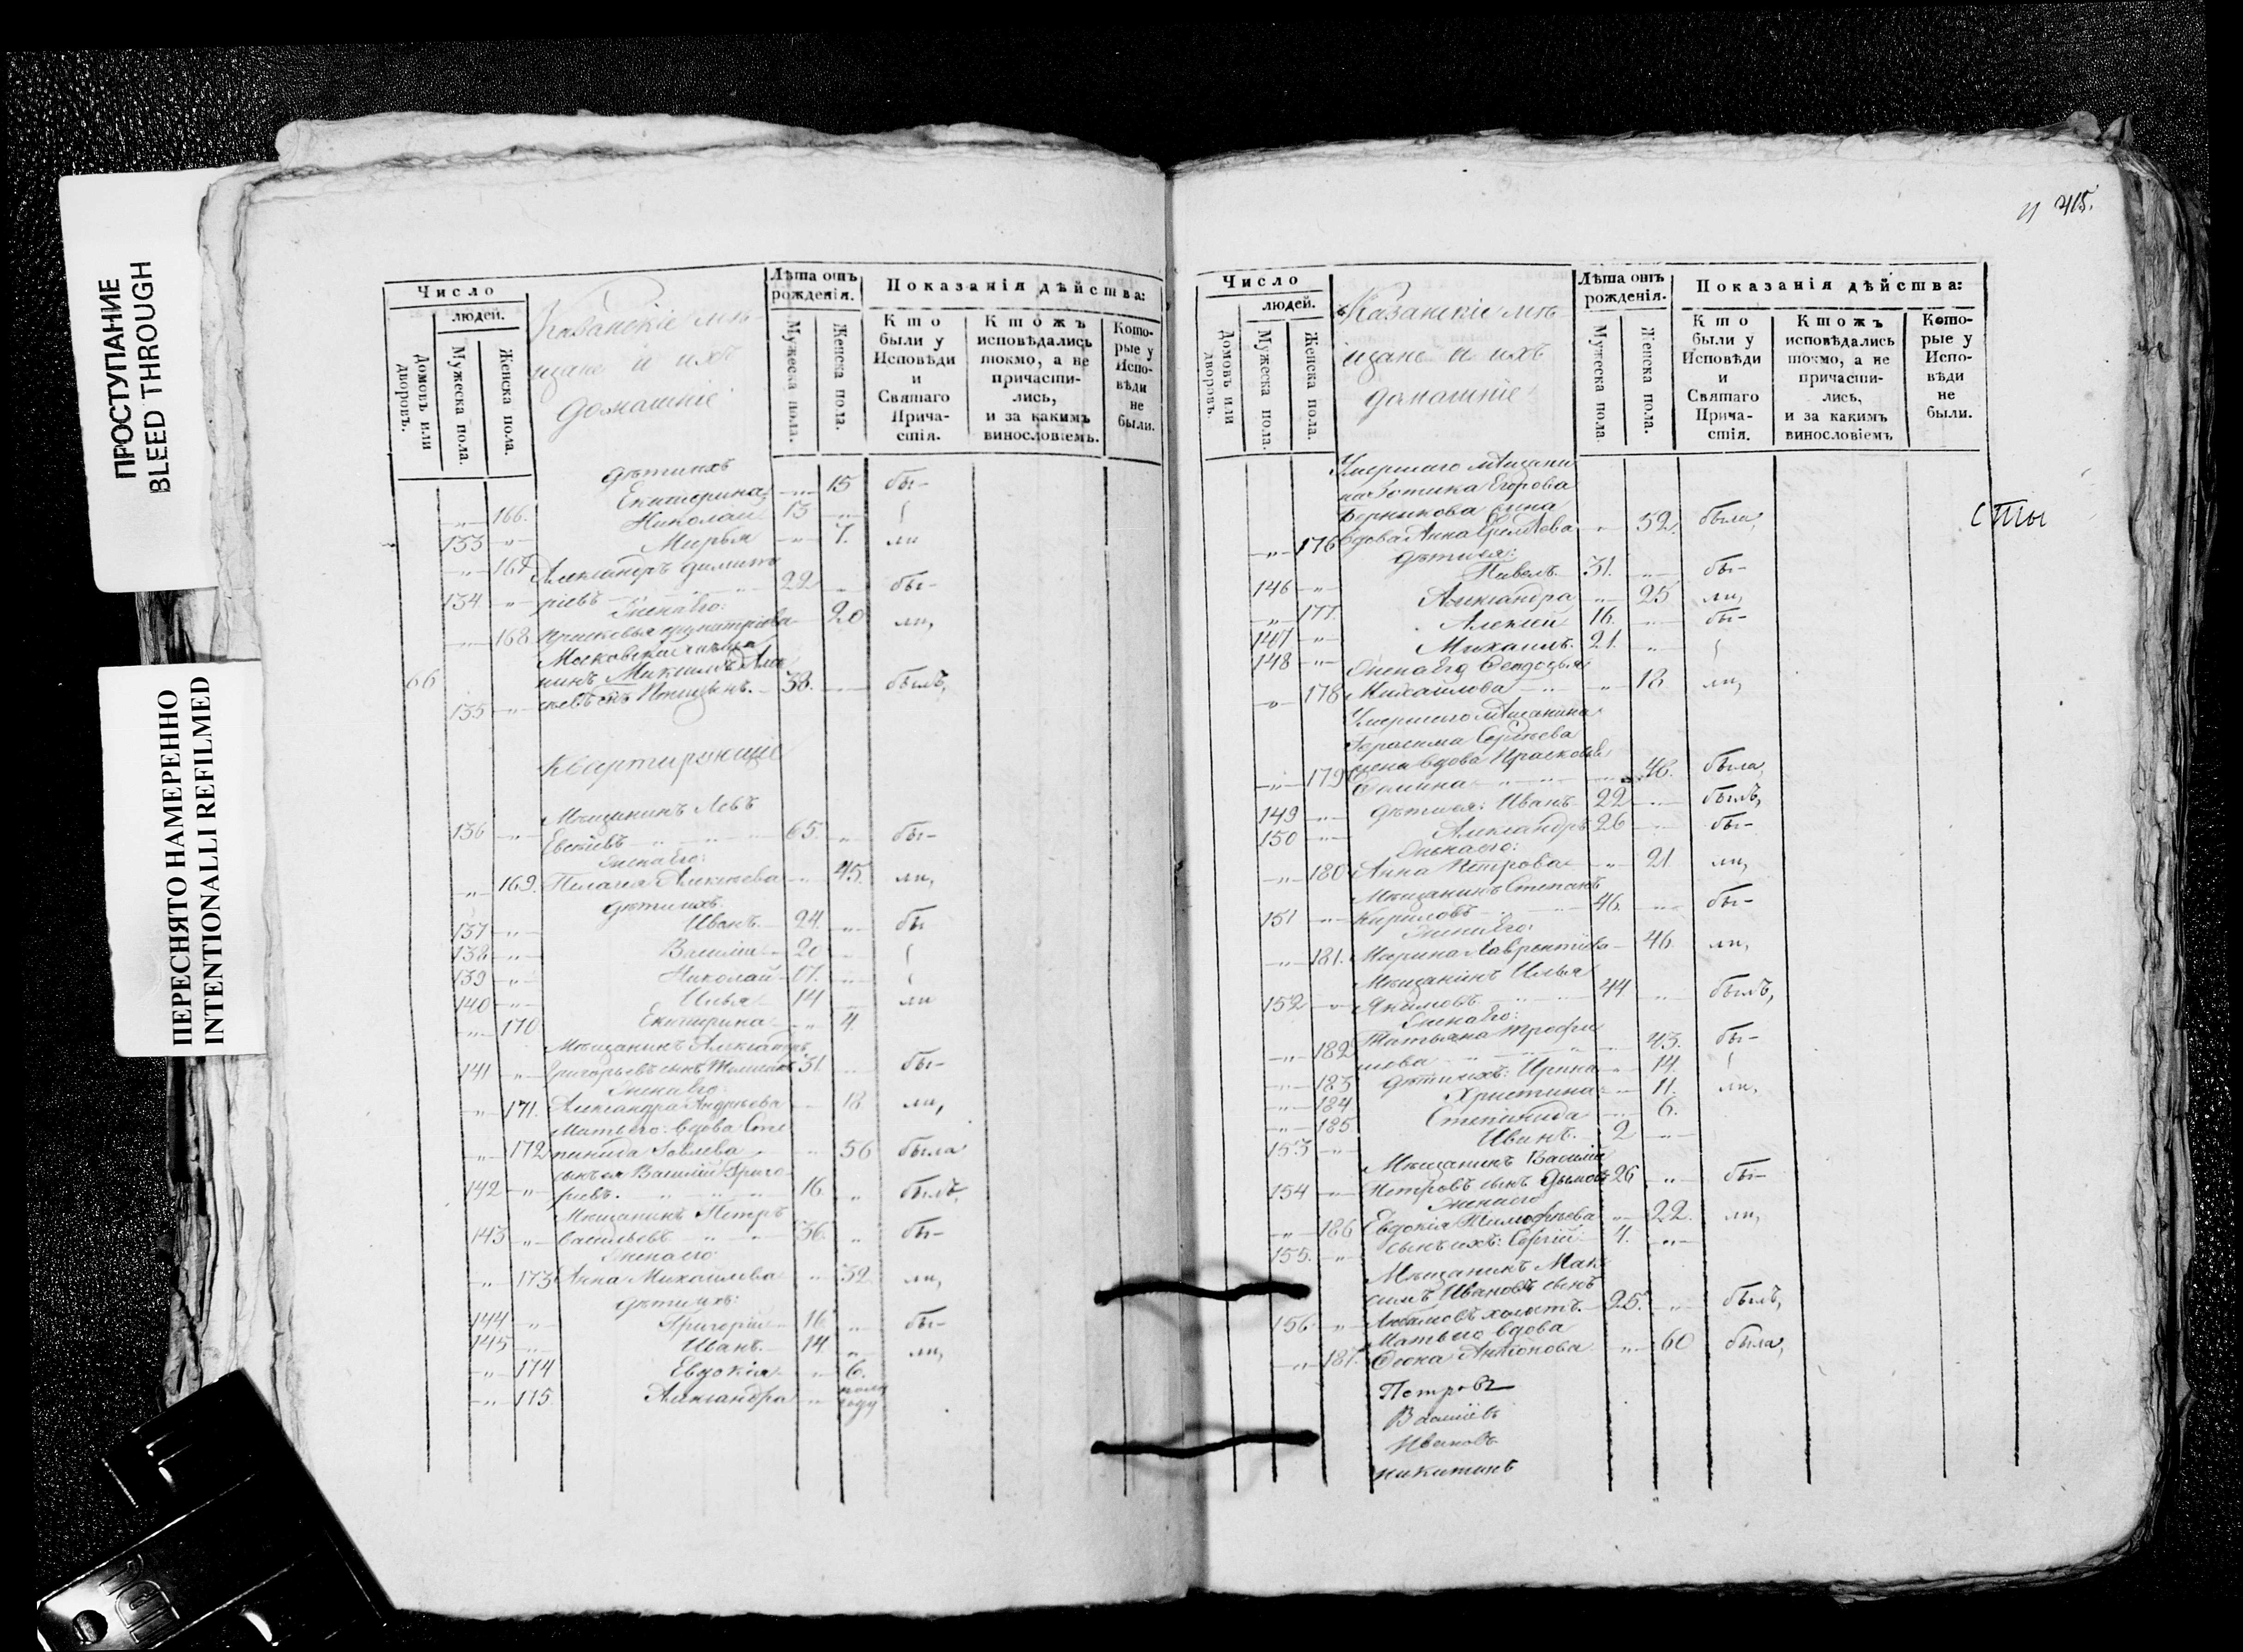 ПРОСТУПАНИЕ
BLEED THROUGH
ПЕРЕСНЯТО НАМЕРЕННО
INTENTIONALLI REFILMED
Число
людей.
Домовъ или дворовъ.
Мужеска пола.
Женска пола.
Казанскіе мѣ-
щане и ихъ
домашніе
Лѣта отъ рожденія.
Мужеска пола.
Женска пола.
Показанія дѣйства:
Кто были у Исповѣди и Святаго Прича-стія.
Ктожъ исповѣдались токмо, а не причасти-лись, и за какимъ винословіемъ.
Кото-рые у Испо-вѣди не были.
дѣти ихъ
166. Екатерина 15 бы-
133 Николай 13
167 Марья 7. ли
Александръ Димит
134 ріевъ 22 бы-
Жена Его:
168 Прасковья Димитріева 20 ли,
66
135 38. былъ,
Квартирующіе
Мѣщанинъ Левъ
136 65. бы-
Жена Его:
169. Пелагея Алексѣева 45. ли,
дѣти ихъ
137 Иванъ 24. бы
138 Василій 20
139 Николай 17.
140 Илья 14 ли
170 Екатерина 4.
Мѣщанинъ Александръ
141 Григорьевъ сынъ 31. бы-
Жена Его:
171. Александра Андреева 18 ли,
Мать его: вдова Сте
172 панида 56 была
сынъ ея Василій Григо-
142 рьевъ. 16. былъ,
Мѣщанинъ Петръ
143 Васильевъ 36. бы-
Жена его
173 Анна Михайлова 32 ли,
дѣти ихъ:
144 Григорій 16 бы-
145 Иванъ. 14 ли,
174 Евдокія 6.
175 Александра полу году
415.
Число
людей.
Домовъ или дворовъ.
Мужеска пола.
Женска пола.
Казанскіе мѣ
щане и ихъ
домашніе
Лѣта отъ рожденія.
Мужеска пола.
Женска пола.
Показанія дѣйства:
Кто были у Исповѣди и Святаго Прича-стія.
Ктожъ исповѣдались токмо, а не причасти-лись, и за какимъ винословіемъ
Кото-рые у Испо-вѣди не были.
Умершаго мѣщани
на Зотика Егорова
176 вдова Анна 52. была,
сты
дѣти ея:
146 Павелъ. 31. бы-
177. Александра 25 ли,
147 Алексѣй 16. бы-
148 Михаилъ. 21.
Жена Его Феодосья
178 Михайлова 18 ли,
Умершаго мѣщанина
Герасима Сергѣева
жена вдова Прасковья
179 Фомина 48. была,
149 дѣти ея: Иванъ 22 былъ,
150 Александръ 26 бы-
Жена его:
180 Анна Петрова 21 ли,
Мѣщанинъ Степанъ
151 Кириловъ 46. бы-
Жена Его:
181. Марина Лаврентіева 46. ли,
Мѣщанинъ Илья
152 Якимовъ 44 былъ,
Жена Его:
Татьяна Трофи
182 мова 43. бы-
183 дѣти ихъ: Ирина 14.
184 Христина 11. ли,
185 Степанида 6.
153 Иванъ. 2
Мѣщанинъ Василій
154 Петровъ сынъ Дымовъ 26 бы-
Жена его
186 Евдокія Тимофѣева 22. ли,
155. сынъ ихъ: Сергѣй 4.
Мѣщанинъ Мак
симъ Ивановъ сынъ
156 холостъ 25. былъ,
Мать его вдова
187. Фекла Антонова 60 была,
Петровъ
Ивановъ
Никитинъ